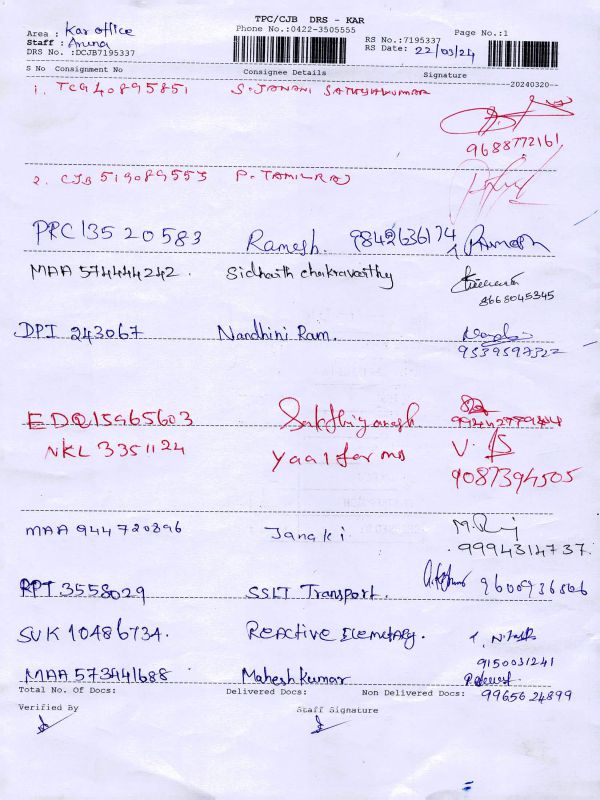 TPC/CJB DRS - KAR
Area : Kar office
Phone No.:0422-3505555
Page No.:1
Staff : Aruna
RS No.:7195337
DRS No. :DCJB7195337
RS Date: 22/03/24
S No Consignment No Consignee Details Signature
20240320
1. TCG40895851 S. JANANI SATHYAKUMAR
9688772161
2. CJB 519089553 P. TAMILRAJ
PRC 13520583 Ramesh. 9842636174 Ramesh
MAA 574444242. Sidharth chakravarthy
8668045345
DPI 243067 Nandhini Ram.
9539597322
EDQ15965603
NKL 3351124 Yaal farms V.
9087394505
MAA 944720896 Janaki
9994314737.
RPT 3558029 SSLT Transport. 9600936806
SUK 10486734. REActive Elemetary.
9150031241
MAA 573441688 Mahesh kumar
Total No. Of Docs: Delivered Docs: Non Delivered Docs: 9965624899
Verified By Staff Signature